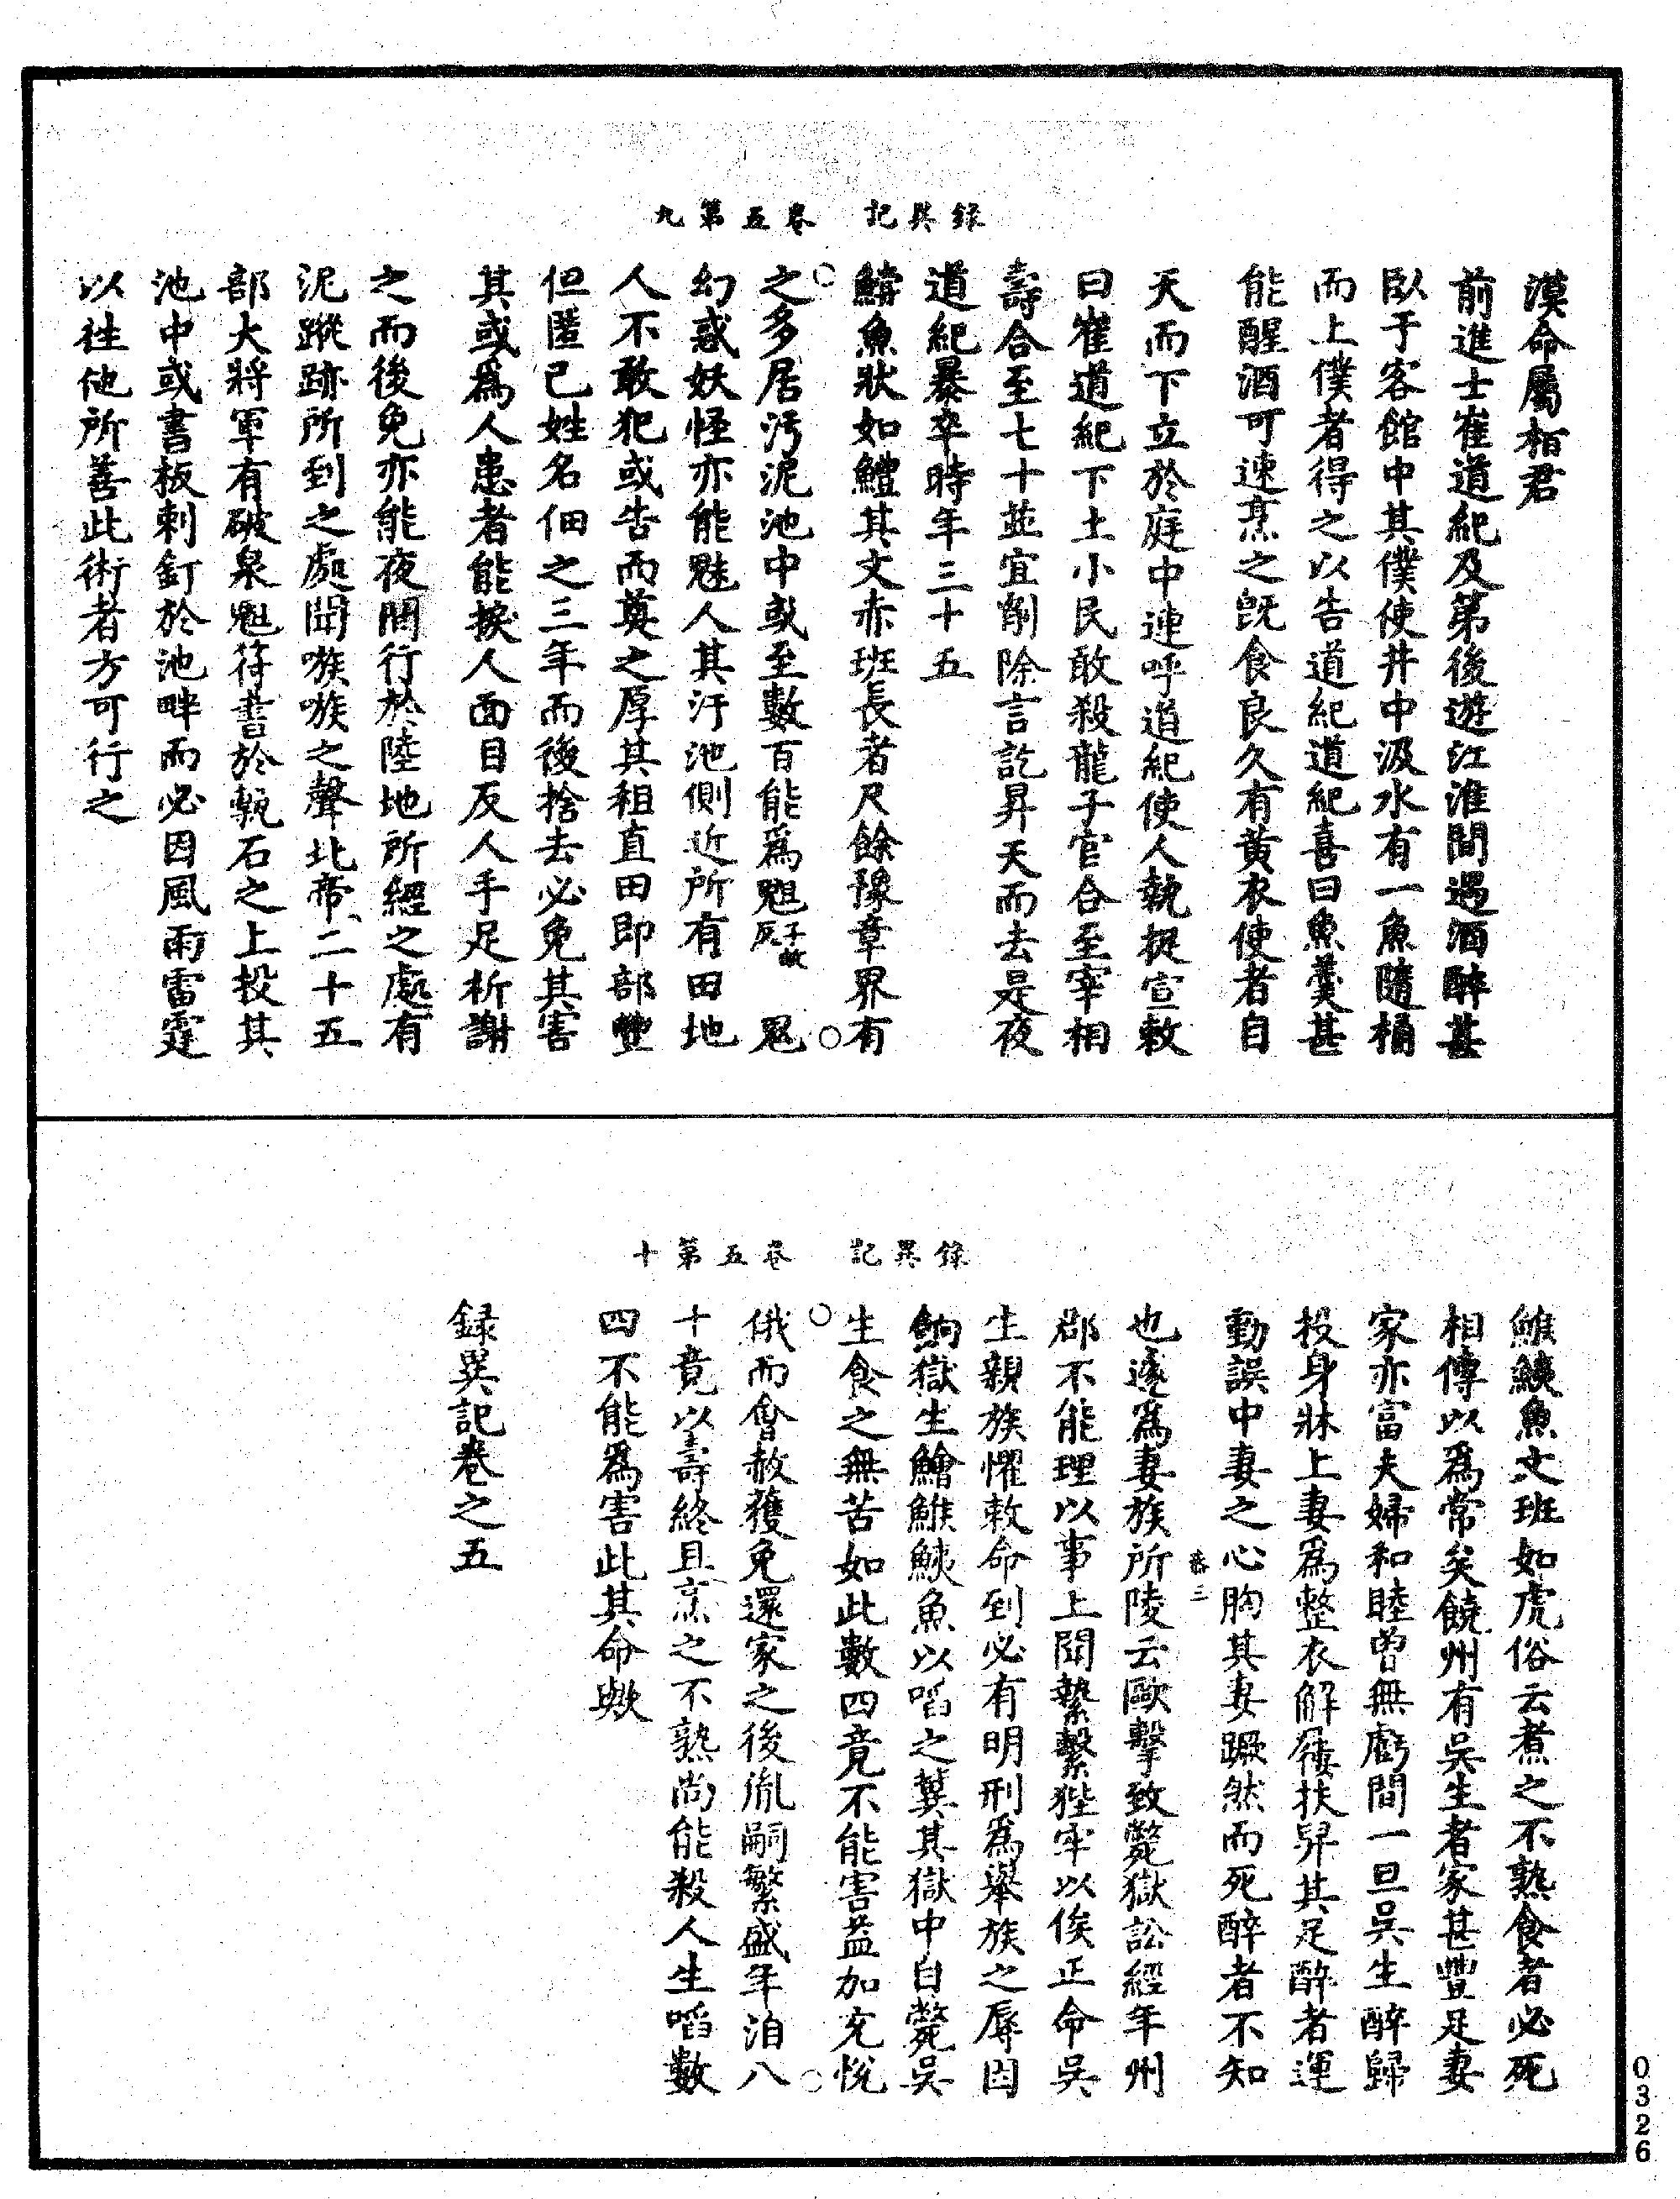 錄異記　卷五第九
漠命屬相君
前進士崔道紀及第後遊江淮間遇酒醉甚
臥于客館中其僕使井中汲水有一魚隨桶
而上僕者得之以告道紀道紀喜曰魚羹甚
能醒酒可速烹之旣食良久有黃衣使者自
天而下立於庭中連呼道紀使人執捉宣敕
曰崔道紀下土小民敢殺龍子官合至宰相
壽合至七十並宜削除言訖昇天而去是夜
道紀暴卒時年三十五
䱜魚狀如鱧其文赤班長者尺餘豫章界有
之多居污泥池中或至數百能爲魃子故反鬼
幻惑妖怪亦能魅人其汙池側近所有田地
人不敢犯或告而奠之厚其租直田即部豐
但匿己姓名佃之三年而後捨去必免其害
其或爲人患者能捩人面目反人手足祈謝
之而後免亦能夜間行於陸地所經之處有
泥蹤跡所到之處聞嗾嗾之聲北帝二十五
部大將軍有破泉魁符書於甎石之上投其
池中或書板刺釘於池畔而必因風雨雷霆
以往他所善此術者方可行之
錄異記　卷五第十
鯸鮧魚文班如虎俗云煮之不熟食者必死
相傳以爲常矣饒州有吳生者家甚豐足妻
家亦富夫婦和睦曾無虧間一旦吳生醉歸
投身牀上妻爲整衣解履扶舁其足醉者運
動誤中妻之心胸其妻蹶然而死醉者不知
恭三
也遽爲妻族所陵云毆擊致斃獄訟經年州
郡不能理以事上聞縶繫狴牢以俟正命吳
生親族懼敕命到必有明刑爲舉族之辱因
餉獄生鱠鯸鮧魚以啗之冀其獄中自斃吳
生食之無苦如此數四竟不能害益加充悅
俄而會赦獲免還家之後胤嗣繁盛年洎八
十竟以壽終且烹之不熟尚能殺人生啗數
四不能爲害此其命歟
録異記卷之五
0326